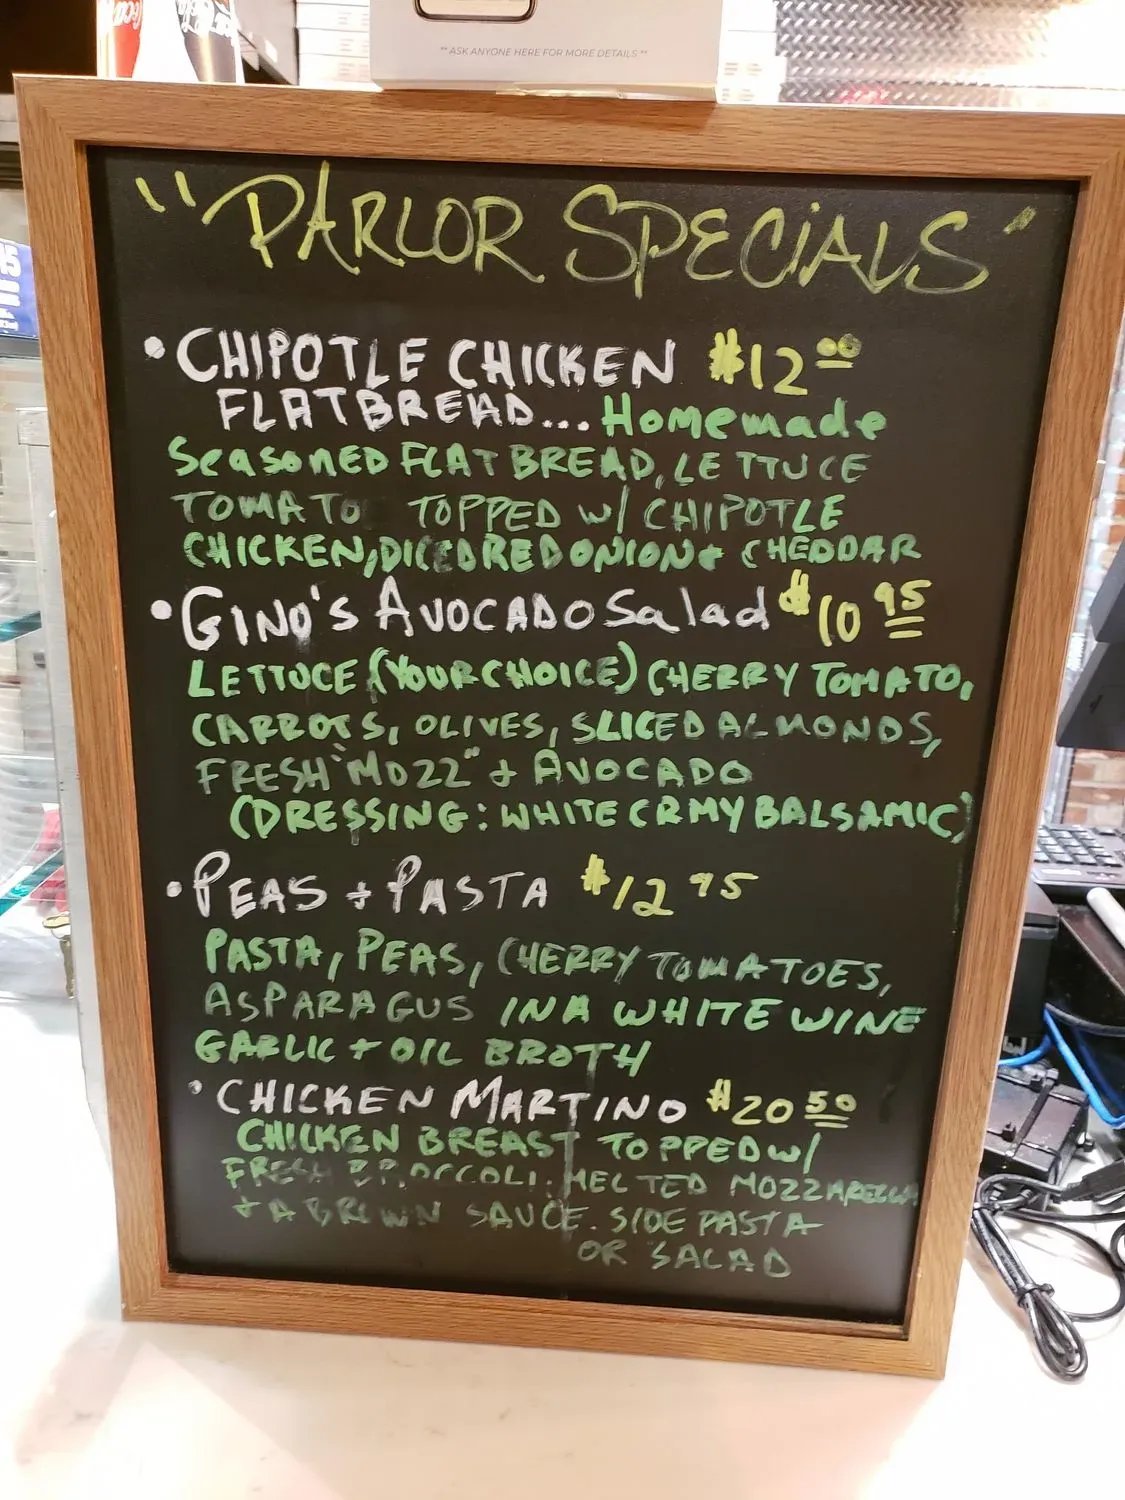 ** ASK ANYONE HERE FOR MORE DETAILS **
"PARLOR SPECIALS"
• CHIPOTLE CHICKEN $12.00
FLATBREAD... Homemade
SEASONED FLAT BREAD, LETTUCE
TOMATO TOPPED W/ CHIPOTLE
CHICKEN, DICED RED ONION + CHEDDAR
• GINO'S AVOCADO Salad $10.95
LETTUCE (YOUR CHOICE) CHERRY TOMATO,
CARROTS, OLIVES, SLICED ALMONDS,
FRESH "MOZZ" + AVOCADO
(DRESSING: WHITE CRMY BALSAMIC)
• PEAS + PASTA $12.95
PASTA, PEAS, CHERRY TOMATOES,
ASPARAGUS IN A WHITE WINE
GARLIC + OIL BROTH
• CHICKEN MARTINO $20.50
CHICKEN BREAST TOPPED W/
FRESH BROCCOLI. MELTED MOZZARELLA
+ A BROWN SAUCE. SIDE PASTA
OR SALAD